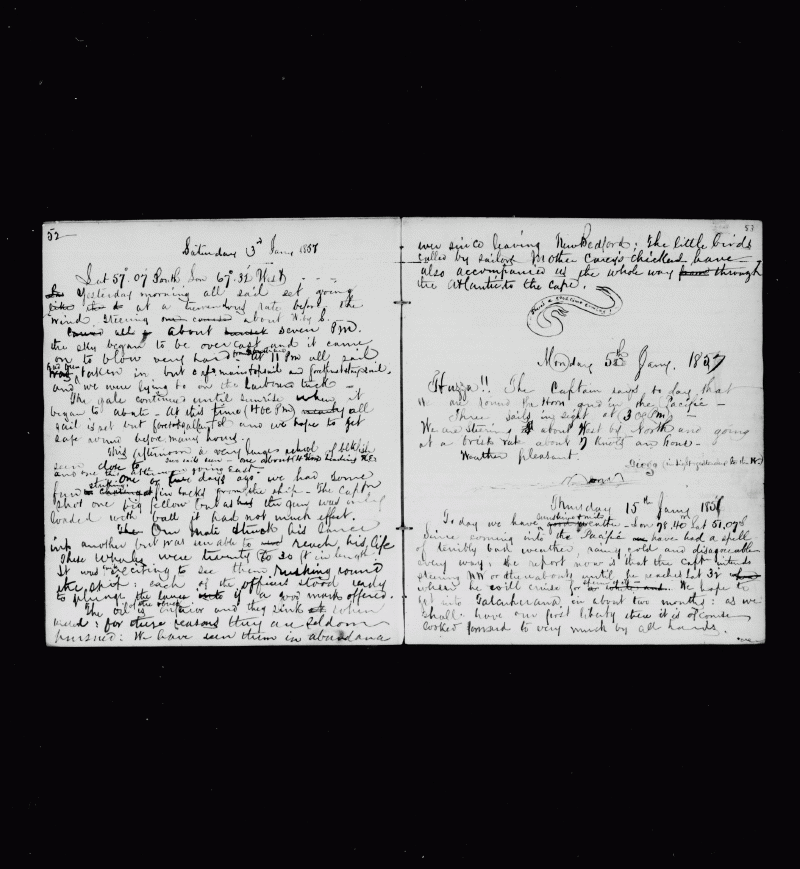 52
Saturday 3d Jany 1857
Lat 57° 07 South Lon 67° 32 West
Yesterday morning all sail set going
at a tremendous rate before the
wind, steering about N. by E.
about seven P.M.
the sky began to be over cast and it came
on to blow very hard at 11 P.M. all sail
taken in but main topsail and
and we were lying to on the Larboard tack –
The gale continued until sunrise when it
began to abate – At this time (4 P.M) all
sail is set but and we hope to get
safe round before many hours
This afternoon a very large school of blkfish
seen close to
sails seen – one about
and one the other going East
One or five days ago we had some
fun striking fin backs from the ship – The Captn
shot one big fellow but as the gun was only
loaded with ball it had not much effect.
The Mate struck his lance
into another but was unable to reach his life
These whales were twenty to 30 ft in length.
It was exciting to see them rushing round
the ship: each of the officers stood ready
to plunge the lance if a good mark offered.
The oil of the is inferior and they sink when
: for these reasons they are seldom
pursued: We have seen them in abundance
53
ever since leaving New Bedford: The little birds
called by sailors Mother Carey's chickens have
also accompanied us the whole way through
the Atlantic to the Cape.
Monday 5th Jany. 1857
Huzza!! The Captain says to day that
We are round the Horn and in the Pacific –
Three sails in sight at 3 P.M.
We are steering about West by North and going
at a brisk rate about 7 knots an hour –
Weather pleasant.
Thursday 15th Jany 1857
To day we have sunshine weather – Lon 78.40 Lat 51.07 S
Since coming into the Pacific have had a spell
of terribly bad weather, rainy cold and disagreeable
every way; the report now is that the Captn intends
steering NW or thereabouts until he reaches Lat 32
where he will cruise for a while. We hope to
get into Talcahuano in about two months: as we
shall have our first liberty there it is of course
looked forward to very much by all hands.